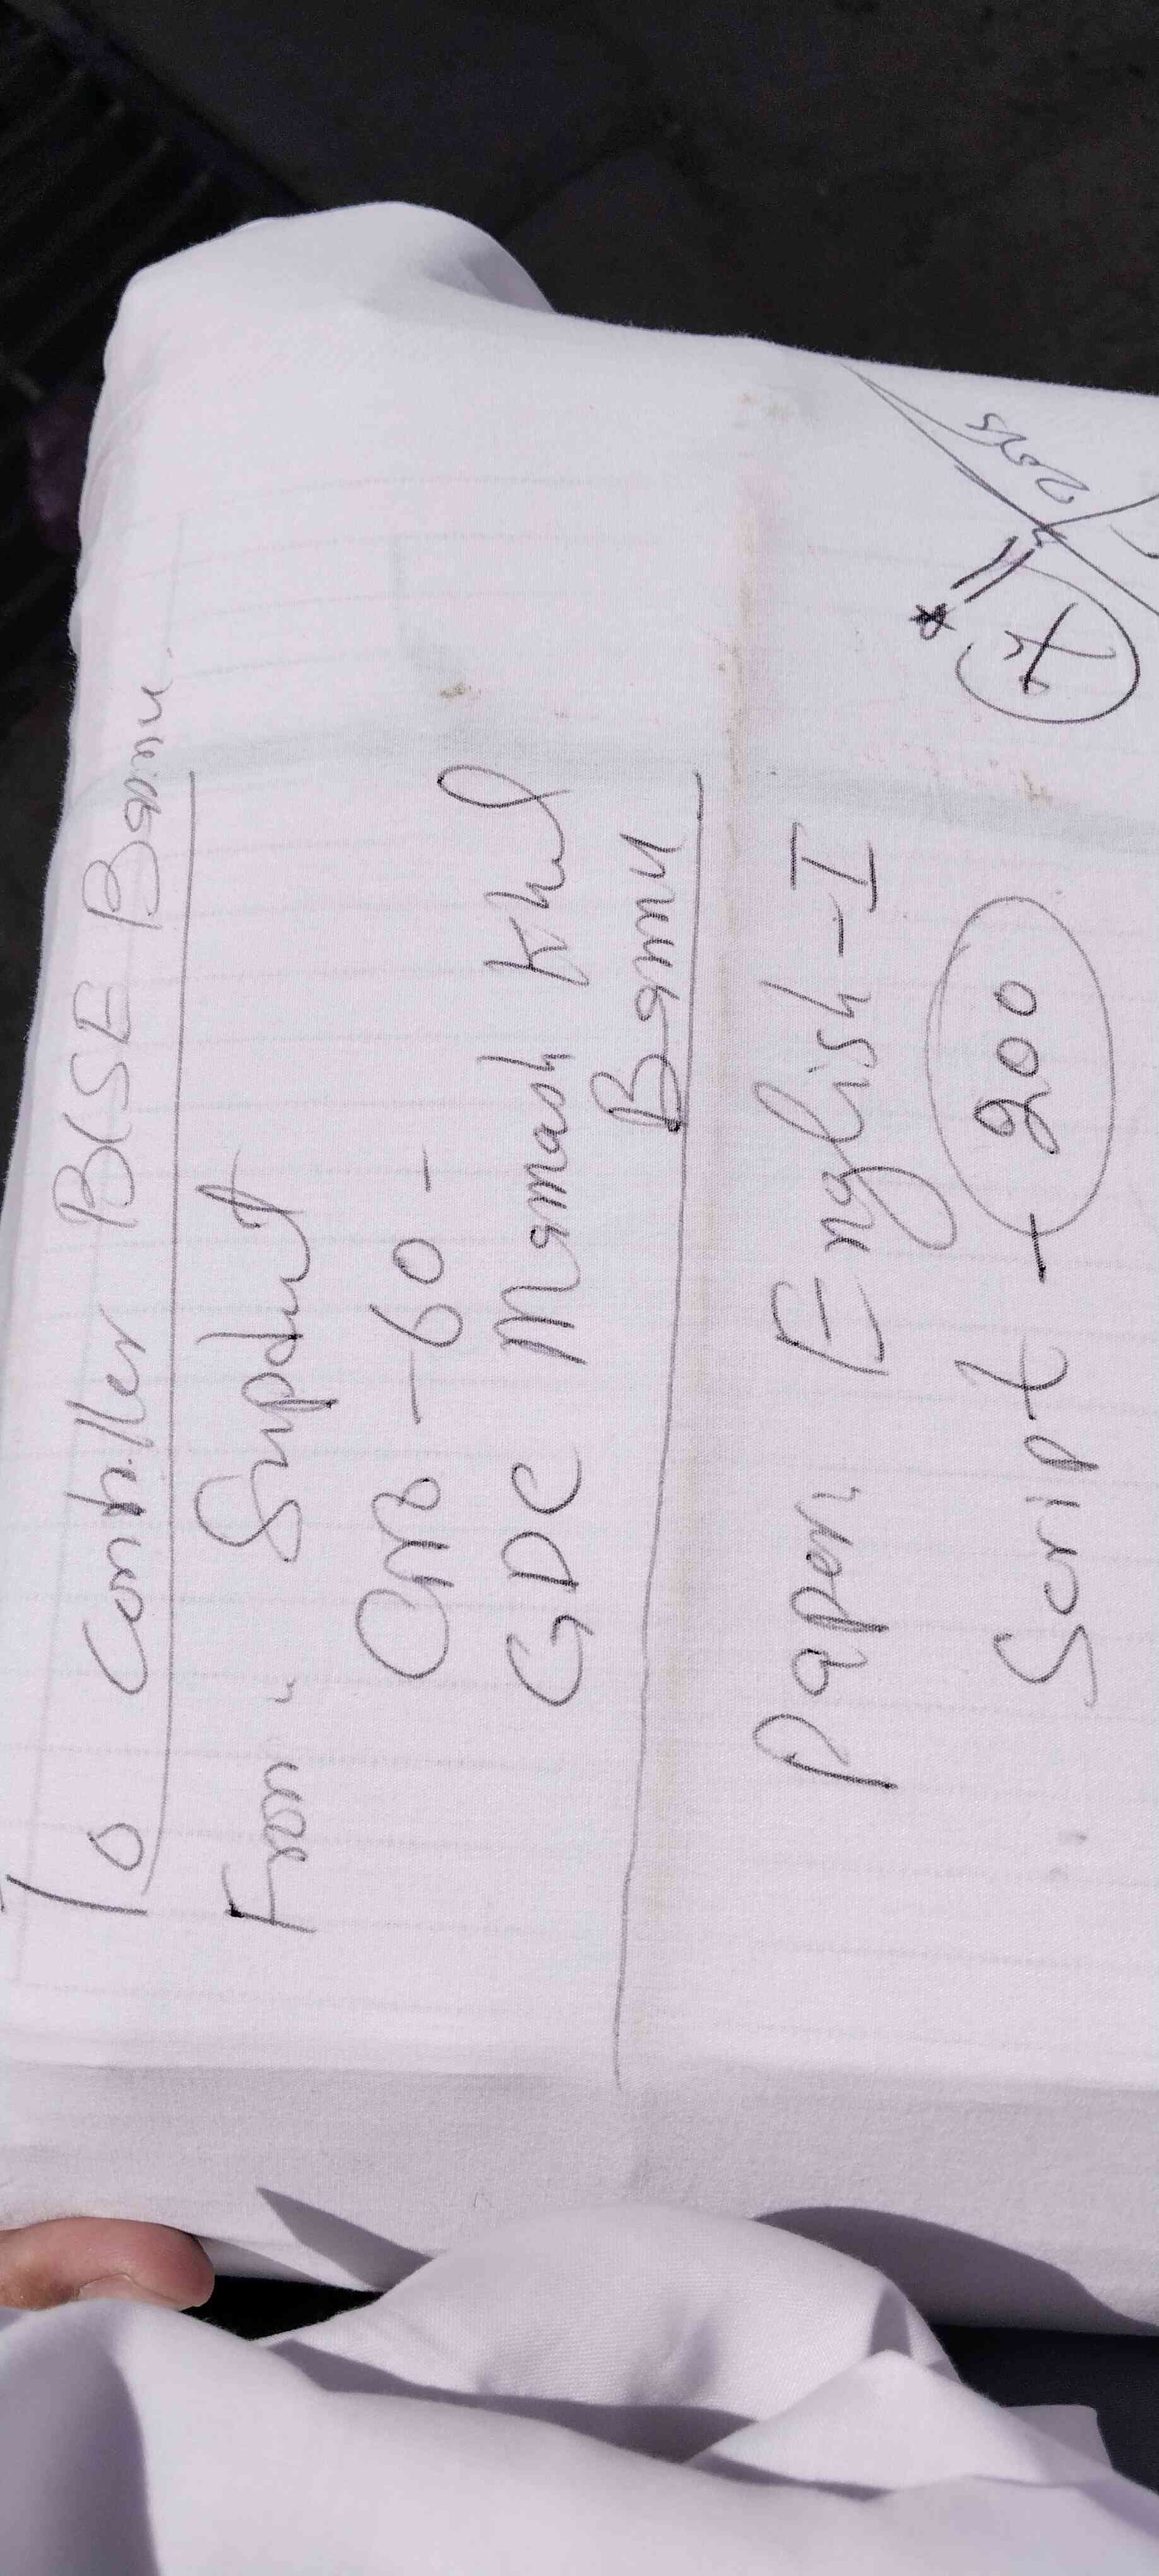 To Contriller BISE Bannu
From " Supdnt
60 -
GDC Mamash Khel
Bannu
Paper English-I
Script - 200